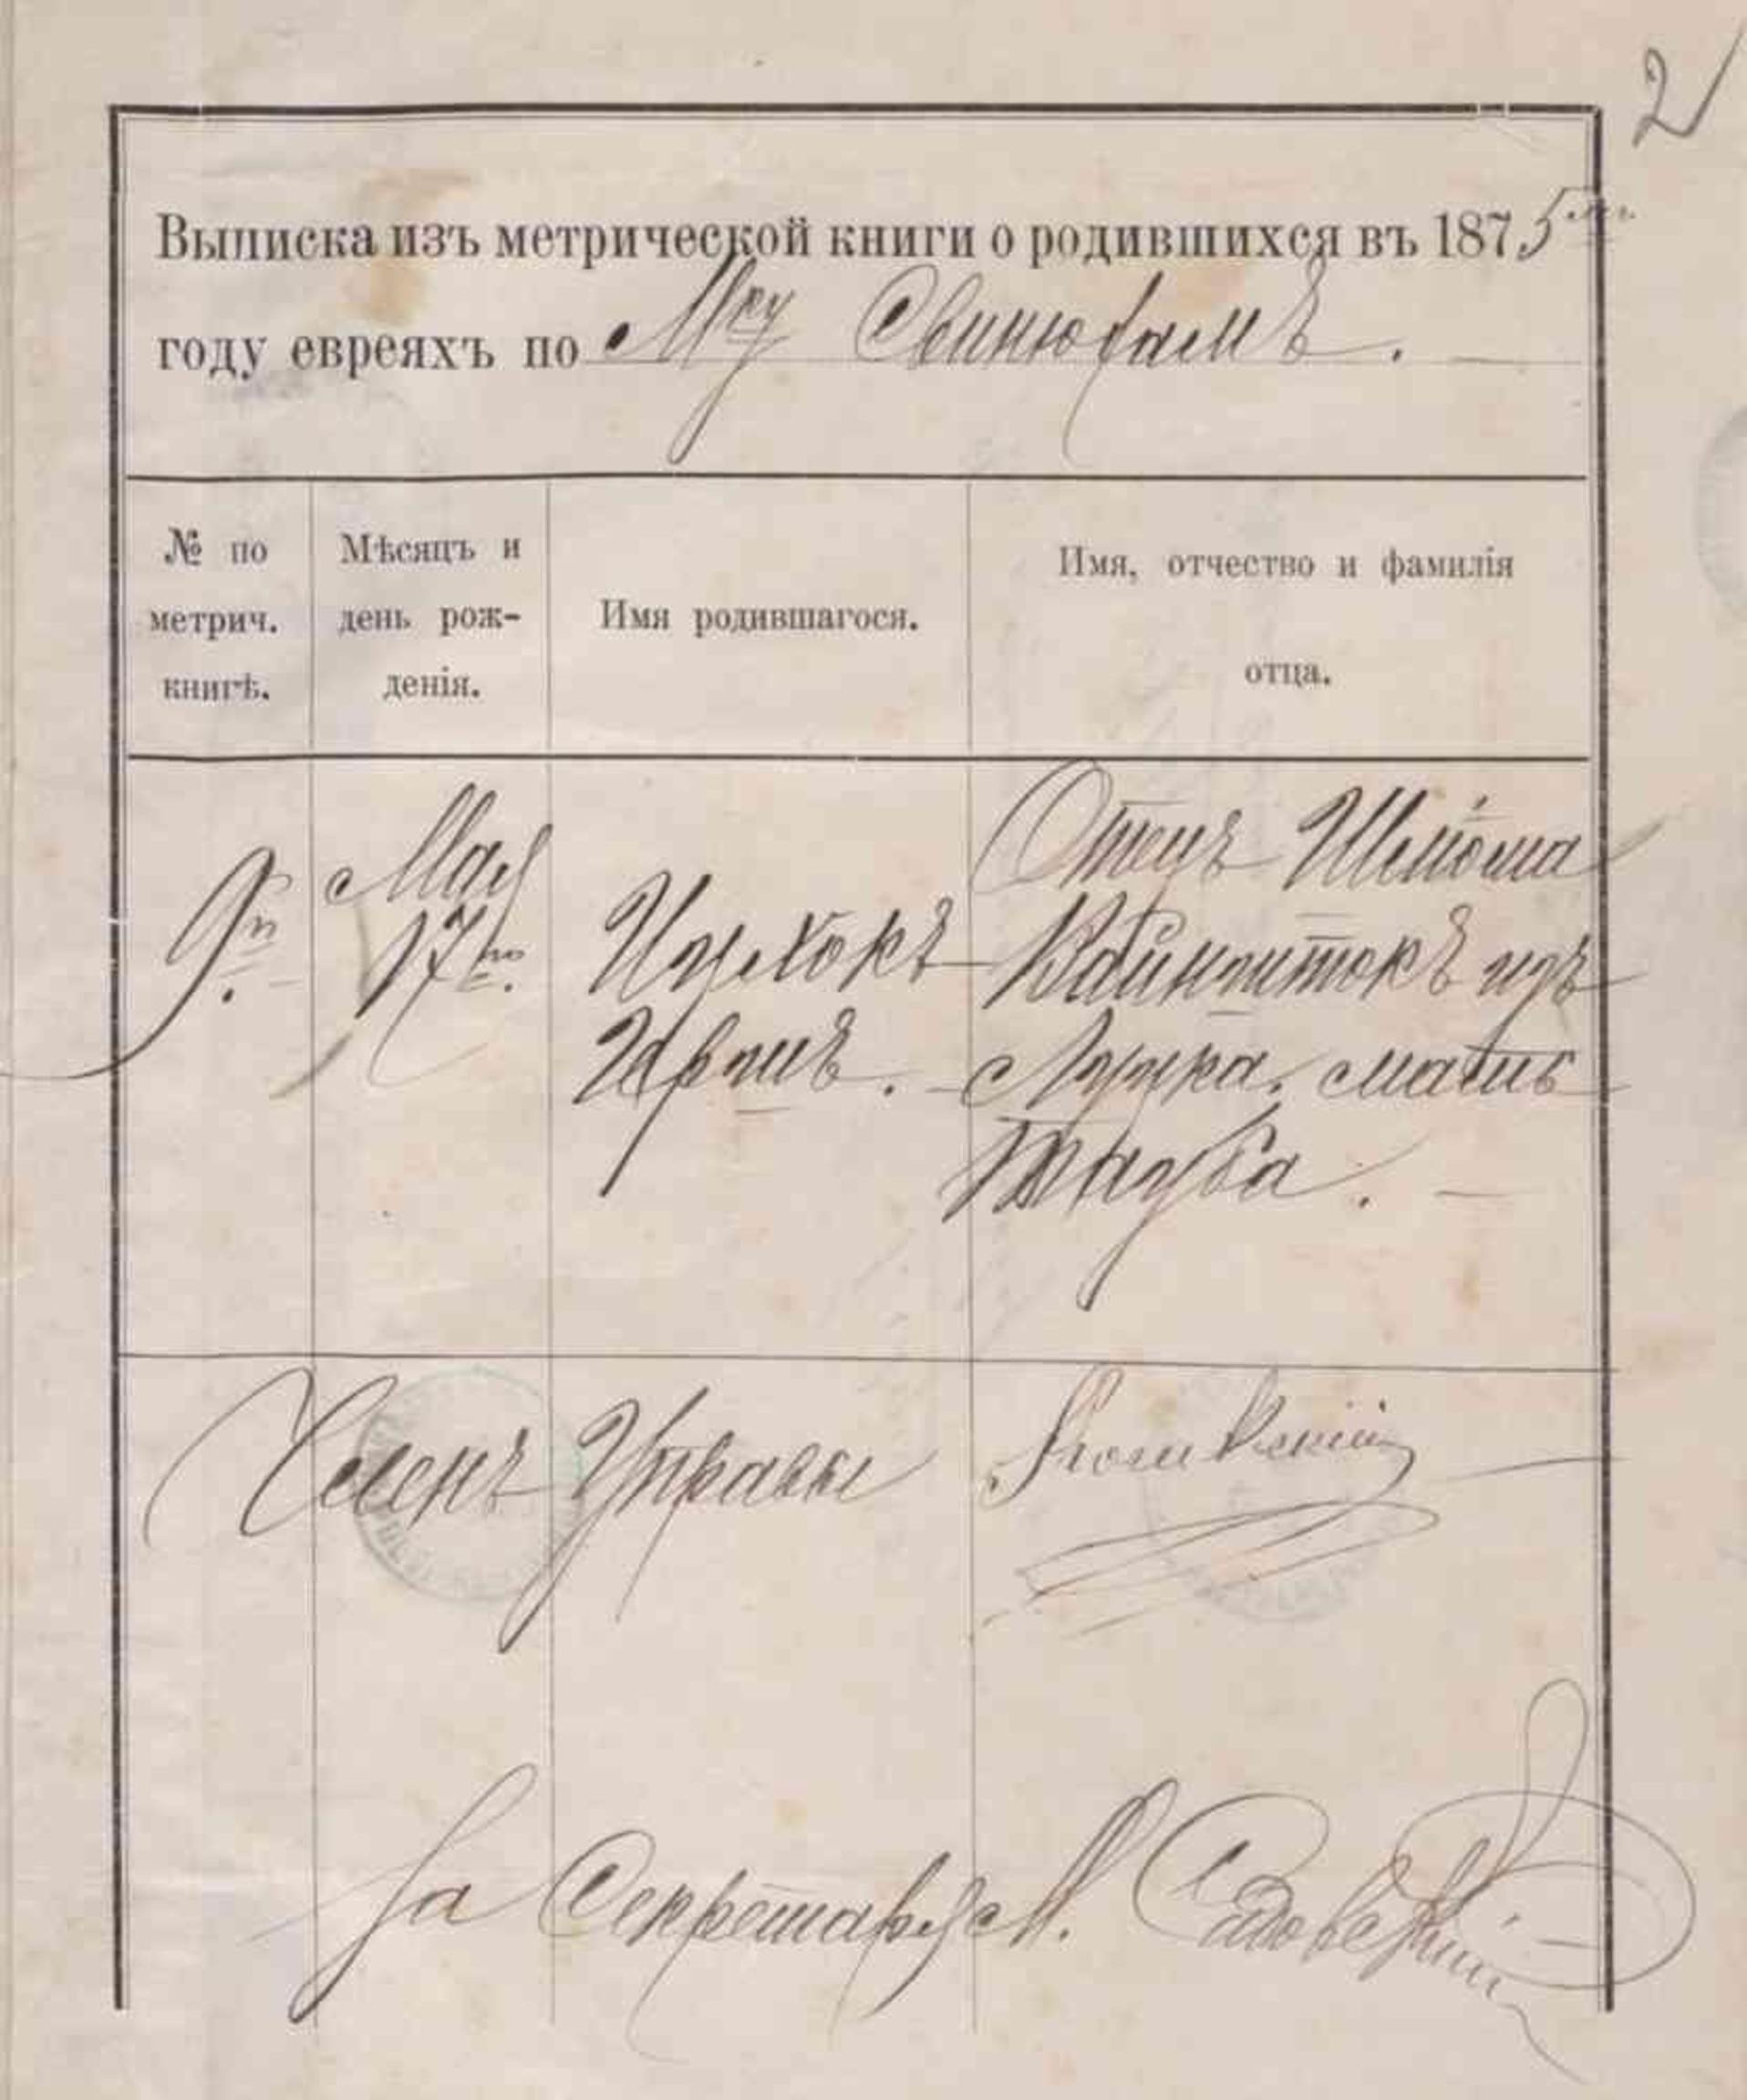 2
Выписка изъ метрической книги о родившихся въ 1875мъ
году евреяхъ по Мку Свинюхамъ.
№ по
метрич.
книгѣ.
Мѣсяцъ и
день рож-
денія.
Имя родившагося.
Имя, отчество и фамилія
отца.
9й
Мая
17го.
Ицхокъ
Гершъ.
Отецъ Шлиома
Вайнштокъ изъ
Луцка, мать
Тауба.
Членъ Управы
За Секретаря М. Садовскій